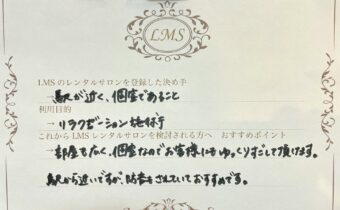 LMS
LMSのレンタルサロンを登録した決め手
→駅が近く、個室であること
利用目的
→リラクゼーション施術
これからLMSレンタルサロンを検討される方へ おすすめポイント
→部屋も広く、個室なのでお客様にもゆっくりすごして頂けます。
駅から近いですが、防音もされていておすすめです。